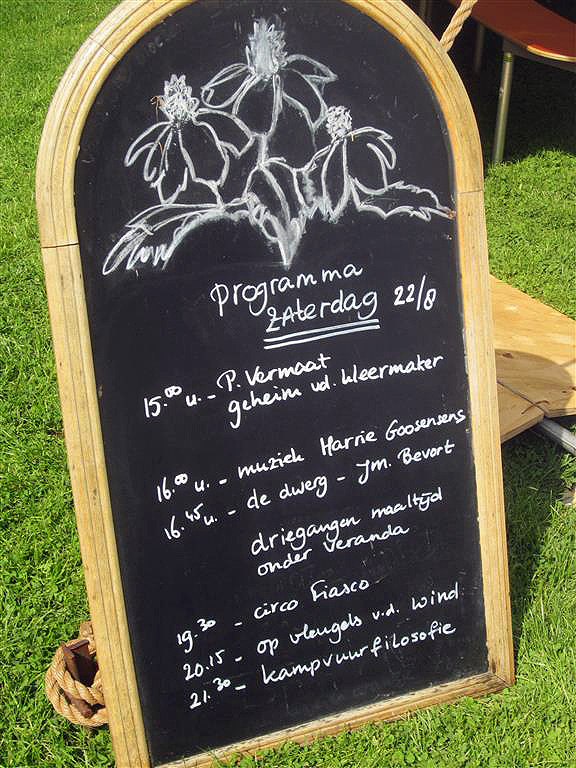 Programma
zaterdag 22/8
15.00 u. - P. Vermaat
geheim vd. Weermaker
16.00 u. - muziek Harrie Goosensens
16.45 u. - de dwerg - Jm. Bevort
driegangen maaltijd
onder veranda
19.30 - circo Fiasco
20.15 - op vleugels v.d. wind
21.30 - kampvuurfilosofie